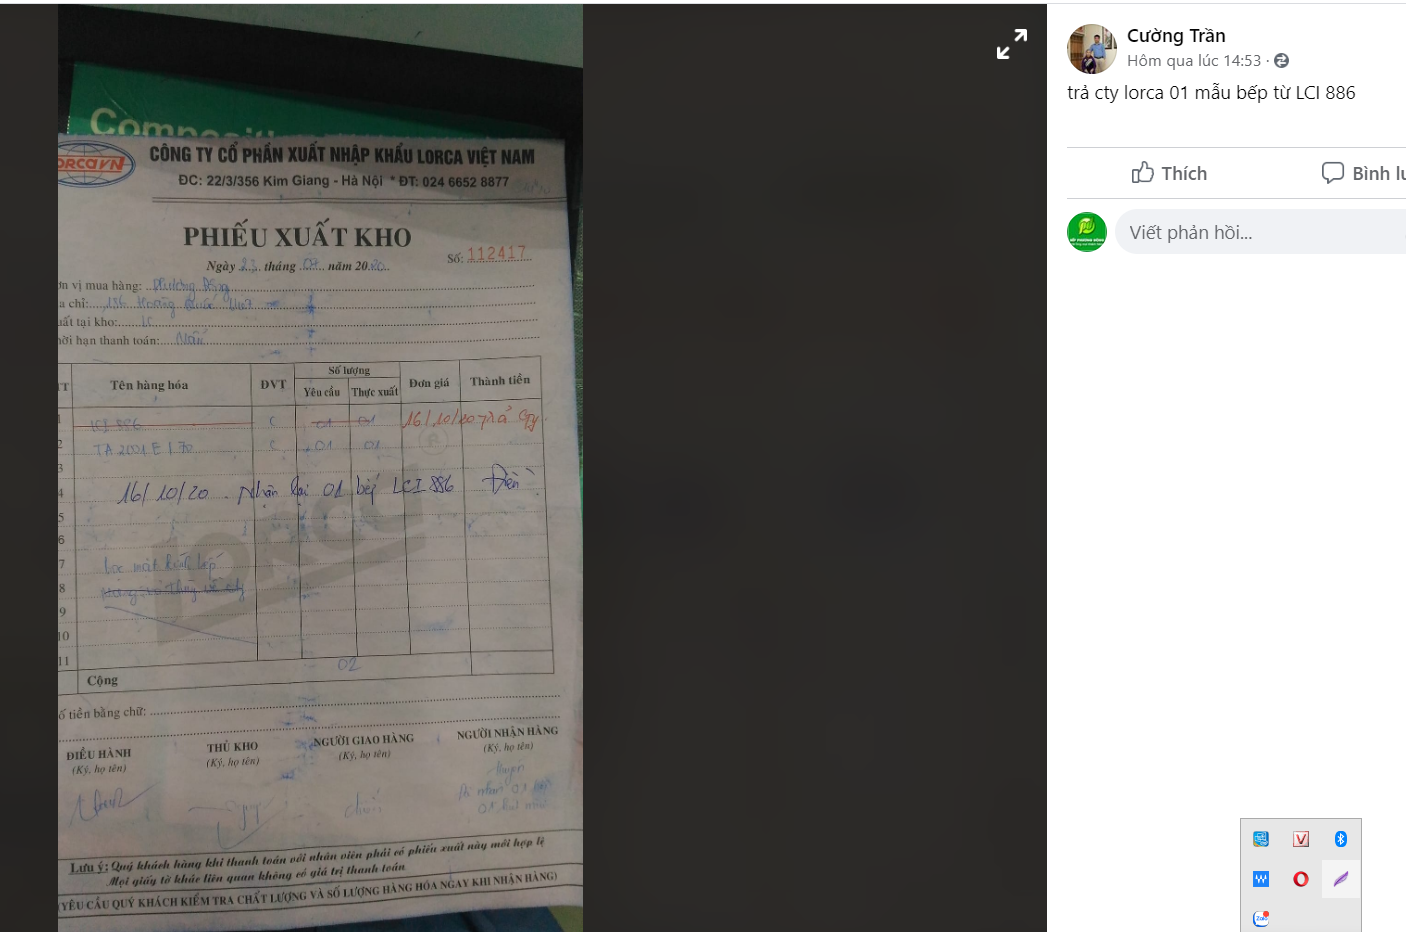 Compositi
LORCAVN
CÔNG TY CỔ PHẦN XUẤT NHẬP KHẨU LORCA VIỆT NAM
ĐC: 22/3/356 Kim Giang - Hà Nội * ĐT: 024 6652 8877
PHIẾU XUẤT KHO
Số: 112417
Ngày 23 tháng 07 năm 2020
ơn vị mua hàng: Phương Đông
a chỉ: 136 Hoàng Quốc Việt
uất tại kho: lc
hời hạn thanh toán:
TT Tên hàng hóa ĐVT Số lượng Đơn giá Thành tiền
Yêu cầu Thực xuất
1 LCI 886 C 01 01 16/10/20 trả Cty
2 TA 2001 E 170 C 01 01
3
4 16/10/20 - nhận lại 01 bếp LCI 886
5
6
7 bếp
8
9
10
11
Cộng 02
ố tiền bằng chữ:
ĐIỀU HÀNH THỦ KHO NGƯỜI GIAO HÀNG NGƯỜI NHẬN HÀNG
(Ký, họ tên) (Ký, họ tên) (Ký, họ tên) (Ký, họ tên)
Lưu ý: Quý khách hàng khi thanh toán với nhân viên phải có phiếu xuất này mới hợp lệ
Mọi giấy tờ khác liên quan không có giá trị thanh toán
(YÊU CẦU QUÝ KHÁCH KIỂM TRA CHẤT LƯỢNG VÀ SỐ LƯỢNG HÀNG HÓA NGAY KHI NHẬN HÀNG)
Cường Trần
Hôm qua lúc 14:53 ·
trả cty lorca 01 mẫu bếp từ LCI 886
Thích Bình lu
Viết phản hồi...
Zalo